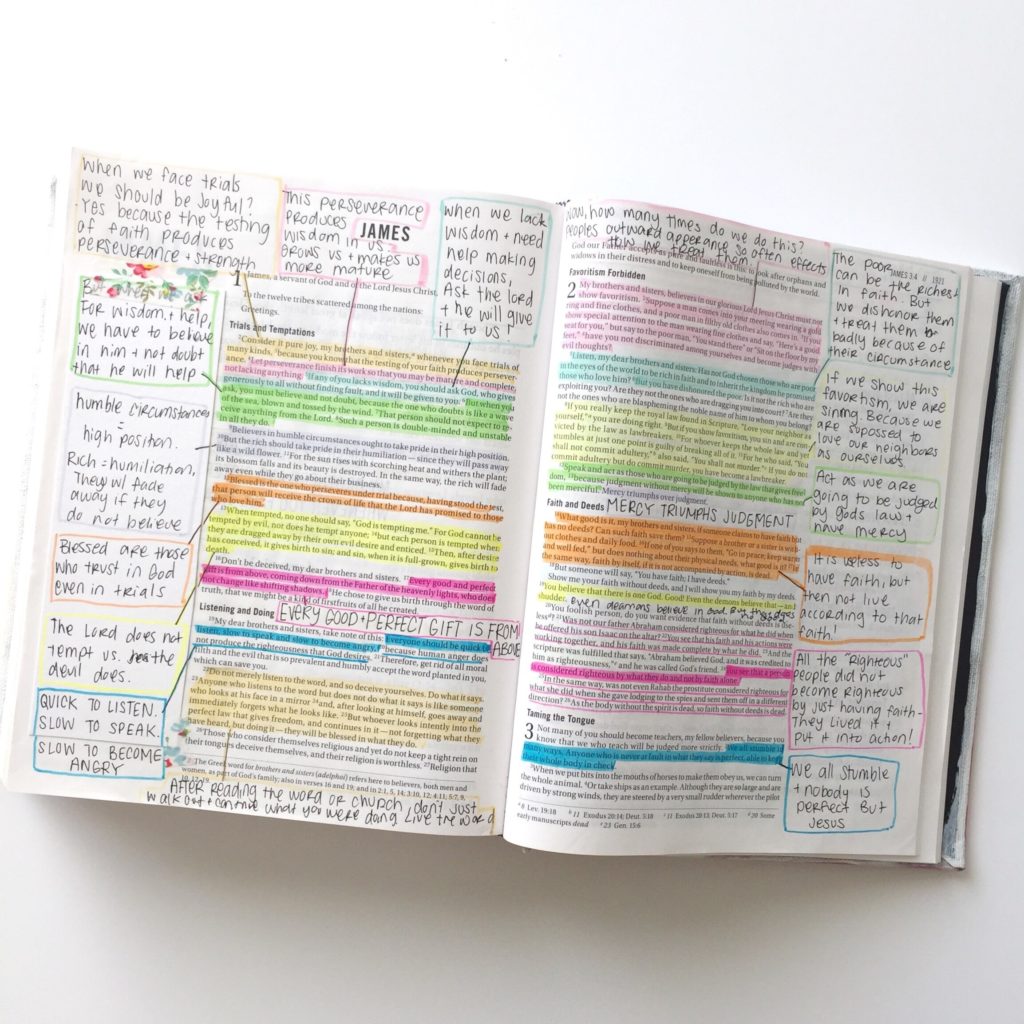 When we face trials
we should be joyful?
Yes because the testing
of faith produces
perseverance + strength
This perseverance
produces
wisdom in us
grows us + makes us
more mature
JAMES
when we lack
wisdom + need
help making
decisions,
Ask the lord
+ he will give
it to us!
But when we ask
For wisdom + help,
we have to believe
in him + not doubt
that he will help
humble circumstances
=
high position.
Rich = humiliation,
They wil fade
away if they
do not believe
Blessed are those
who trust in God
even in trials
The Lord does not
tempt us. the
devil does.
QUICK TO LISTEN.
SLOW TO SPEAK.
SLOW TO BECOME
ANGRY
1 James, a servant of God and of the Lord Jesus Christ,
To the twelve tribes scattered among the nations:
Greetings.
Trials and Temptations
2Consider it pure joy, my brothers and sisters,a whenever you face trials of
many kinds, 3because you know that the testing of your faith produces persever-
ance. 4Let perseverance finish its work so that you may be mature and complete,
not lacking anything. 5If any of you lacks wisdom, you should ask God, who gives
generously to all without finding fault, and it will be given to you. 6But when you
ask, you must believe and not doubt, because the one who doubts is like a wave
of the sea, blown and tossed by the wind. 7That person should not expect to re-
ceive anything from the Lord. 8Such a person is double-minded and unstable
in all they do.
9Believers in humble circumstances ought to take pride in their high position.
10But the rich should take pride in their humiliation — since they will pass away
like a wild flower. 11For the sun rises with scorching heat and withers the plant;
its blossom falls and its beauty is destroyed. In the same way, the rich will fade
away even while they go about their business.
12Blessed is the one who perseveres under trial because, having stood the test,
that person will receive the crown of life that the Lord has promised to those
who love him.
13When tempted, no one should say, "God is tempting me." For God cannot be
tempted by evil, nor does he tempt anyone; 14but each person is tempted when
they are dragged away by their own evil desire and enticed. 15Then, after desire
has conceived, it gives birth to sin; and sin, when it is full-grown, gives birth to
death.
16Don't be deceived, my dear brothers and sisters. 17Every good and perfect
gift is from above, coming down from the Father of the heavenly lights, who does
not change like shifting shadows. 18He chose to give us birth through the word of
truth, that we might be a kind of firstfruits of all he created.
Listening and Doing
EVERY GOOD + PERFECT GIFT IS FROM
ABOVE
19My dear brothers and sisters, take note of this: Everyone should be quick to
listen, slow to speak and slow to become angry, 20because human anger does
not produce the righteousness that God desires. 21Therefore, get rid of all moral
filth and the evil that is so prevalent and humbly accept the word planted in you,
which can save you.
22Do not merely listen to the word, and so deceive yourselves. Do what it says.
23Anyone who listens to the word but does not do what it says is like someone
who looks at his face in a mirror 24and, after looking at himself, goes away and
immediately forgets what he looks like. 25But whoever looks intently into the
perfect law that gives freedom, and continues in it — not forgetting what they
have heard, but doing it — they will be blessed in what they do.
26Those who consider themselves religious and yet do not keep a tight rein on
their tongues deceive themselves, and their religion is worthless. 27Religion that
The Greek word for brothers and sisters (adelphoi) refers here to believers, both men and
women, as part of God's family; also in verses 16 and 19; and in 2:1, 5, 14; 3:10, 12; 4:11; 5:7, 9,
AFTER reading the word or church, don't just
walk out + continue what you were doing. Live the word
how many times do we do this?
peoples outward apperance so often effects
how we treat them
JAMES 3:4 || 1921
God our Father accepts as pure and faultless is this: to look after orphans and
widows in their distress and to keep oneself from being polluted by the world.
Favoritism Forbidden
2 My brothers and sisters, believers in our glorious Lord Jesus Christ must not
show favoritism. 2Suppose a man comes into your meeting wearing a gold
ring and fine clothes, and a poor man in filthy old clothes also comes in. 3If you
show special attention to the man wearing fine clothes and say, "Here's a good
seat for you," but say to the poor man, "You stand there" or "Sit on the floor by my
feet," 4have you not discriminated among yourselves and become judges with
evil thoughts?
5Listen, my dear brothers and sisters: Has not God chosen those who are poor
in the eyes of the world to be rich in faith and to inherit the kingdom he promised
those who love him? 6But you have dishonored the poor. Is it not the rich who are
exploiting you? Are they not the ones who are dragging you into court? 7Are they
not the ones who are blaspheming the noble name of him to whom you belong?
8If you really keep the royal law found in Scripture, "Love your neighbor as
yourself," you are doing right. 9But if you show favoritism, you sin and are con-
victed by the law as lawbreakers. 10For whoever keeps the whole law and yet
stumbles at just one point is guilty of breaking all of it. 11For he who said, "You
shall not commit adultery," also said, "You shall not murder." If you do not
commit adultery but do commit murder, you have become a lawbreaker.
12Speak and act as those who are going to be judged by the law that gives free-
dom, 13because judgment without mercy will be shown to anyone who has not
been merciful. Mercy triumphs over judgment.
Faith and Deeds
MERCY TRIUMPHS JUDGMENT
14What good is it, my brothers and sisters, if someone claims to have faith but
has no deeds? Can such faith save them? 15Suppose a brother or a sister is with-
out clothes and daily food. 16If one of you says to them, "Go in peace; keep warm
and well fed," but does nothing about their physical needs, what good is it? 17In
the same way, faith by itself, if it is not accompanied by action, is dead.
18But someone will say, "You have faith; I have deeds."
Show me your faith without deeds, and I will show you my faith by my deeds.
19You believe that there is one God. Good! Even the demons believe that — and
shudder.
even deamons believe in God.
20You foolish person, do you want evidence that faith without deeds is use-
less? 21Was not our father Abraham considered righteous for what he did when
he offered his son Isaac on the altar? 22You see that his faith and his actions were
working together, and his faith was made complete by what he did. 23And the
scripture was fulfilled that says, "Abraham believed God, and it was credited to
him as righteousness," and he was called God's friend. 24You see that a person
is considered righteous by what they do and not by faith alone.
25In the same way, was not even Rahab the prostitute considered righteous for
what she did when she gave lodging to the spies and sent them off in a different
direction? 26As the body without the spirit is dead, so faith without deeds is dead.
Taming the Tongue
3 Not many of you should become teachers, my fellow believers, because you
know that we who teach will be judged more strictly. 2We all stumble in
many ways. Anyone who is never at fault in what they say is perfect, able to keep
their whole body in check.
3When we put bits into the mouths of horses to make them obey us, we can turn
the whole animal. 4Or take ships as an example. Although they are so large and are
driven by strong winds, they are steered by a very small rudder wherever the pilot
8 Lev. 19:18 11 Exodus 20:14; Deut. 5:18 11 Exodus 20:13; Deut. 5:17 20 Some
early manuscripts dead 23 Gen. 15:6
The poor
can be the richest
in faith. But
we dishonor them
+ treat them
badly because of
their circumstance
If we show this
favoritism, we are
sining. Because we
are supossed to
love our neighbors
as ourselves
Act as we are
going to be judged
by gods law +
have mercy
It is useless to
have faith, but
then not live
according to that
faith!
All the "righteous"
people did not
become righteous
by just having faith-
They lived it +
put it into action!
We all stumble
+ nobody is
perfect But
Jesus